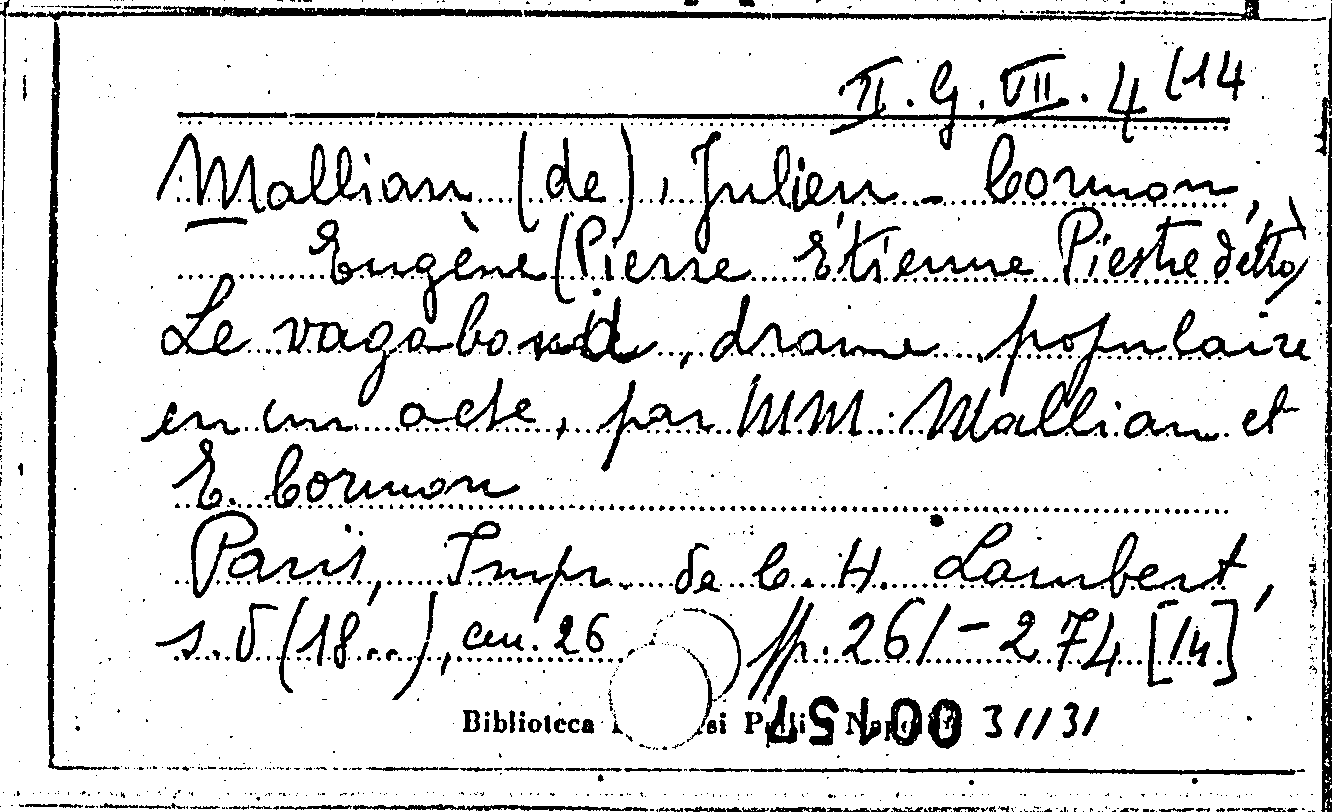 II. G. VII. 4 (14
Mallian (de), Julien - Cormon,
Eugène (Pierre Étienne Piestre detto)
Le vagabond, drame populaire
en un acte, par MM. Mallian et
E. Cormon
Paris, Impr. de C. H. Lambert,
s. d (18..), cm. 26 pp. 261-274 [14]
Biblioteca 31131